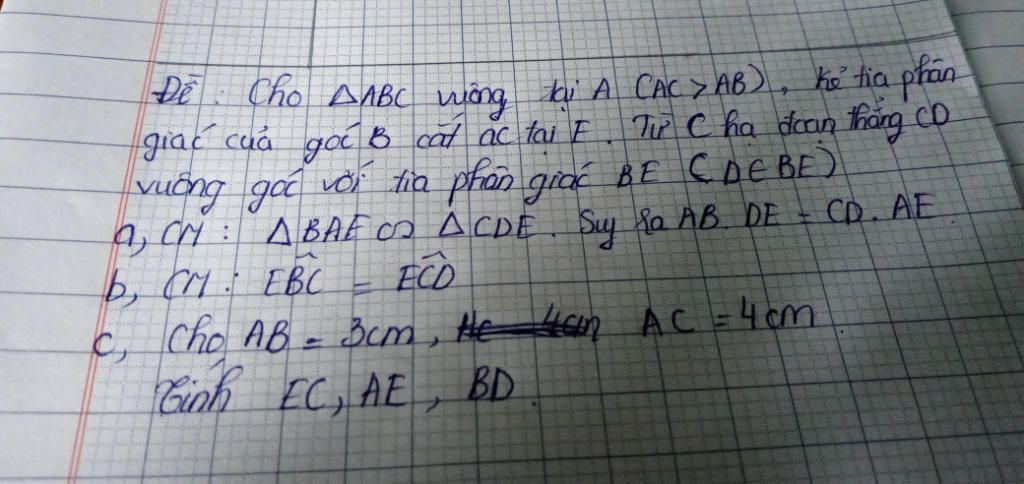 Đề: Cho △ABC vuông tại A (AC > AB), kẻ tia phân
giác của góc B cắt ac tại E. Từ C hạ đoạn thẳng CD
vuông góc với tia phân giác BE (D∈BE)
a, CM: △BAE ∽ △CDE. Suy ra AB. DE = CD. AE.
b, CM: EB̂C = EĈD
c, Cho AB = 3cm, AC = 4cm.
Tính EC, AE, BD.